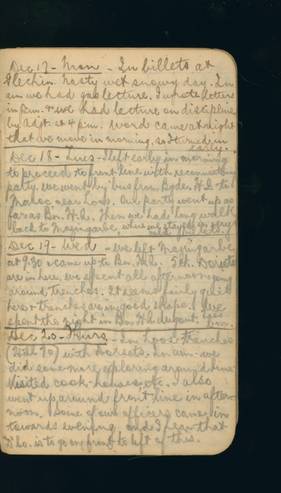 Dec 17 - Mon - In billets at
nasty wet snowy day. In
a.m. we had gas lecture. I wrote letters
in p.m. & we had lecture on discipline
by Adjt. at 4 p.m. Word came at night
that we move in morning, so I turned in
early.
Dec 18 - Tues - I left early in morning
to proceed to front line with reconnoitring
party. We went by bus from Bgde. H.Q. to
Maroc near Loos. Our party went up as
far as Bn. H.Q. Then we had long walk
back to Mazingarbe, where we stayed
Dec 19 - Wed - We left Mazingarbe
at 9.30 & came up to Bn. H.Q. 5th. Dorsets
are in here. We spent all afternoon going
around trenches. It seems fairly quiet
here & trenches are in good shape. We
spent the night in Bn. H.Q. dugout.
Dec 20 - Thurs - In Loos trenches
(Hill 70) with Dorsets. In a.m. we
did some more exploring around & we
visited cook-houses, etc. I also
went up around front line in after-
noon. Some of our officers came in
towards evening and I hear that
D Co. is to go in front to left of this.